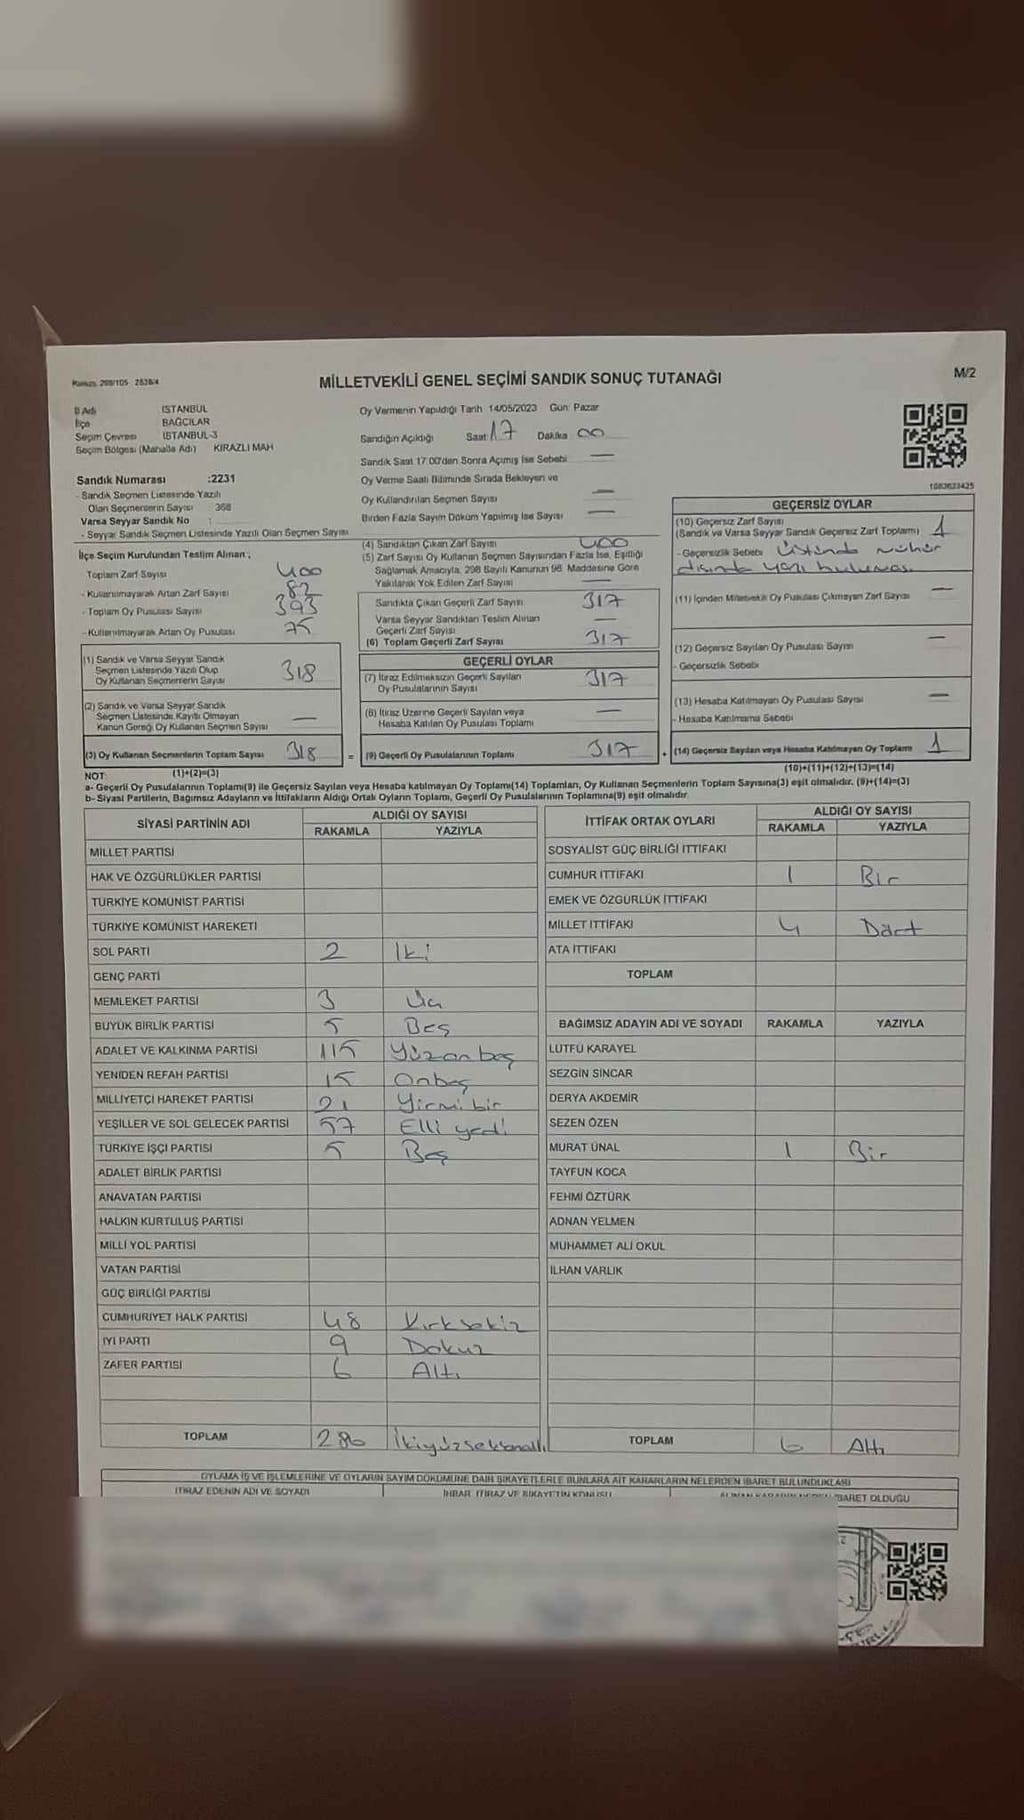 Kanun: 298/105 2839/4
MİLLETVEKİLİ GENEL SEÇİMİ SANDIK SONUÇ TUTANAĞI
M/2
İl Adı İSTANBUL
İlçe BAĞCILAR
Seçim Çevresi İSTANBUL-3
Seçim Bölgesi (Mahalle Adı) KİRAZLI MAH
Sandık Numarası :2231
- Sandık Seçmen Listesinde Yazılı
Olan Seçmenlerin Sayısı 368
Varsa Seyyar Sandık No :
- Seyyar Sandık Seçmen Listesinde Yazılı Olan Seçmen Sayısı
İlçe Seçim Kurulundan Teslim Alınan ;
Toplam Zarf Sayısı 400
- Kullanılmayarak Artan Zarf Sayısı 82
- Toplam Oy Pusulası Sayısı 393
- Kullanılmayarak Artan Oy Pusulası 75
(1) Sandık ve Varsa Seyyar Sandık
Seçmen Listesinde Yazılı Olup
Oy Kullanan Seçmenlerin Sayısı 318
(2) Sandık ve Varsa Seyyar Sandık
Seçmen Listesinde Kayıtlı Olmayan
Kanun Gereği Oy Kullanan Seçmen Sayısı —
(3) Oy Kullanan Seçmenlerin Toplam Sayısı 318
Oy Vermenin Yapıldığı Tarih 14/05/2023 Gün: Pazar
Sandığın Açıldığı Saat 17 Dakika 00
Sandık Saat 17:00'den Sonra Açımış İse Sebebi —
Oy Verme Saati Bitiminde Sırada Bekleyen ve
Oy Kullandırılan Seçmen Sayısı —
Birden Fazla Sayım Döküm Yapılmış İse Sayısı —
(4) Sandıktan Çıkan Zarf Sayısı 400
(5) Zarf Sayısı Oy Kullanan Seçmen Sayısından Fazla İse, Eşitliği
Sağlamak Amacıyla, 298 Sayılı Kanunun 98. Maddesine Göre
Yakılarak Yok Edilen Zarf Sayısı —
Sandıkta Çıkan Geçerli Zarf Sayısı 317
Varsa Seyyar Sandıktan Teslim Alınan
Geçerli Zarf Sayısı —
(6) Toplam Geçerli Zarf Sayısı 317
GEÇERLİ OYLAR
(7) İtiraz Edilmeksizin Geçerli Sayılan
Oy Pusulalarının Sayısı 317
(8) İtiraz Üzerine Geçerli Sayılan veya
Hesaba Katılan Oy Pusulası Toplamı —
= (9) Geçerli Oy Pusulalarının Toplamı 317
1083623425
GEÇERSİZ OYLAR
(10) Geçersiz Zarf Sayısı
(Sandık ve Varsa Seyyar Sandık Geçersiz Zarf Toplamı) 1
- Geçersizlik Sebebi Üstünde mühür
dışında yazı bulunması
(11) İçinden Milletvekili Oy Pusulası Çıkmayan Zarf Sayısı —
(12) Geçersiz Sayılan Oy Pusulası Sayısı —
- Geçersizlik Sebebi
(13) Hesaba Katılmayan Oy Pusulası Sayısı —
- Hesaba Katılmama Sebebi
+ (14) Geçersiz Sayılan veya Hesaba Katılmayan Oy Toplamı 1
NOT: (1)+(2)=(3)
(10)+(11)+(12)+(13)=(14)
a- Geçerli Oy Pusulalarının Toplamı(9) ile Geçersiz Sayılan veya Hesaba Katılmayan Oy Toplamı(14) Toplamları, Oy Kullanan Seçmenlerin Toplam Sayısına(3) eşit olmalıdır. (9)+(14)=(3)
b- Siyasi Partilerin, Bağımsız Adayların ve İttifakların Aldığı Ortak Oyların Toplamı, Geçerli Oy Pusulalarının Toplamına(9) eşit olmalıdır.
SİYASİ PARTİNİN ADI ALDIĞI OY SAYISI
RAKAMLA YAZIYLA
MİLLET PARTİSİ
HAK VE ÖZGÜRLÜKLER PARTİSİ
TÜRKİYE KOMÜNİST PARTİSİ
TÜRKİYE KOMÜNİST HAREKETİ
SOL PARTİ 2 İki
GENÇ PARTİ
MEMLEKET PARTİSİ 3 Üç
BÜYÜK BİRLİK PARTİSİ 5 Beş
ADALET VE KALKINMA PARTİSİ 115 Yüzon beş
YENİDEN REFAH PARTİSİ 15 Onbeş
MİLLİYETÇİ HAREKET PARTİSİ 21 Yirmi bir
YEŞİLLER VE SOL GELECEK PARTİSİ 57 Elli yedi
TÜRKİYE İŞÇİ PARTİSİ 5 Beş
ADALET BİRLİK PARTİSİ
ANAVATAN PARTİSİ
HALKIN KURTULUŞ PARTİSİ
MİLLİ YOL PARTİSİ
VATAN PARTİSİ
GÜÇ BİRLİĞİ PARTİSİ
CUMHURİYET HALK PARTİSİ 48 Kırksekiz
İYİ PARTİ 9 Dokuz
ZAFER PARTİSİ 6 Altı
TOPLAM 286 İkiyüzseksenaltı
İTTİFAK ORTAK OYLARI ALDIĞI OY SAYISI
RAKAMLA YAZIYLA
SOSYALİST GÜÇ BİRLİĞİ İTTİFAKI
CUMHUR İTTİFAKI 1 Bir
EMEK VE ÖZGÜRLÜK İTTİFAKI
MİLLET İTTİFAKI 4 Dört
ATA İTTİFAKI
TOPLAM
BAĞIMSIZ ADAYIN ADI VE SOYADI RAKAMLA YAZIYLA
LÜTFÜ KARAYEL
SEZGİN SİNCAR
DERYA AKDEMİR
SEZEN ÖZEN
MURAT ÜNAL 1 Bir
TAYFUN KOCA
FEHMİ ÖZTÜRK
ADNAN YELMEN
MUHAMMET ALİ OKUL
İLHAN VARLIK
TOPLAM 6 Altı
OYLAMA İŞ VE İŞLEMLERİNE VE OYLARIN SAYIM DÖKÜMÜNE DAİR ŞİKAYETLERLE BUNLARA AİT KARARLARIN NELERDEN İBARET BULUNDUKLARI
İTİRAZ EDENİN ADI VE SOYADI İHBAR, İTİRAZ VE ŞİKAYETİN KONUSU İBARET OLDUĞU